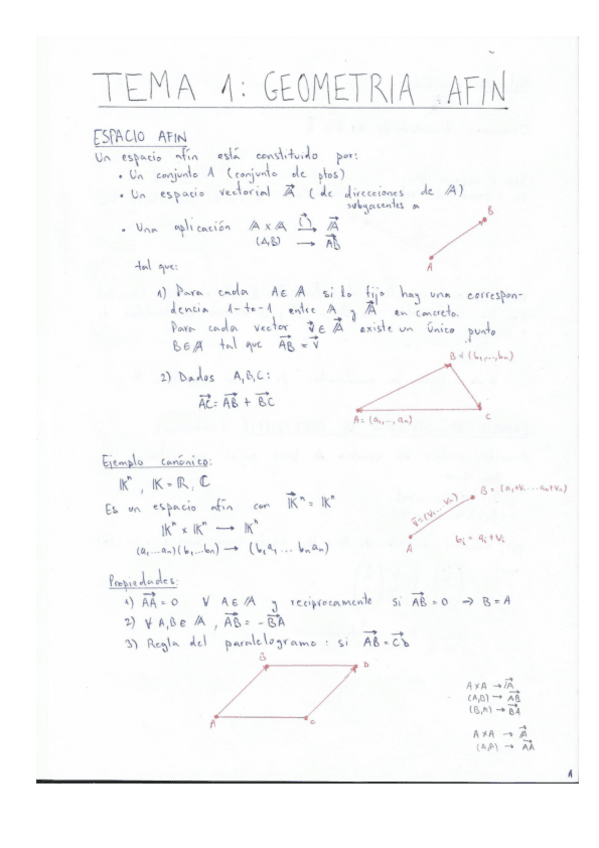 TEMA 1: GEOMETRIA AFIN
ESPACIO AFIN
Un espacio afín está constituido por:
• Un conjunto 1 (conjunto de ptos)
• Un espacio vectorial 𝔸⃗ (de direcciones de 𝔸)
subyacentes a
• Una aplicación 𝔸 x 𝔸 → 𝔸⃗
(A,B) → AB⃗
B
A
tal que:
1) Para cada A ∈ 𝔸 si lo fijo hay una correspon-
dencia 1-to-1 entre 𝔸 y 𝔸⃗ en concreto.
Para cada vector v⃗ ∈ 𝔸⃗ existe un único punto
B∈𝔸 tal que AB⃗ = v⃗
2) Dados A,B,C:
AC⃗ = AB⃗ + BC⃗
(b₁,...,bₙ)
A=(a₁,..,aₙ)
C
Ejemplo canónico:
𝕂ⁿ, 𝕂 = ℝ, ℂ
Es un espacio afín con 𝕂⃗ⁿ = 𝕂ⁿ
𝕂ⁿ x 𝕂ⁿ → 𝕂ⁿ
(a₁,...aₙ)(b₁,...bₙ) → (b₁a₁ ... bₙaₙ)
B = (a₁+v₁....aₙ+vₙ)
v⃗=(v₁...vₙ)
A
bᵢ = aᵢ + vᵢ
Propiedades:
1) AA⃗ = 0 ∀ A∈𝔸 y reciprocamente si AB⃗ = 0 → B = A
2) ∀ A,B∈𝔸, AB⃗ = -BA⃗
3) Regla del paralelogramo: si AB⃗ = CD⃗
B
D
A
C
A x A → 𝔸⃗
(A,B) → AB⃗
(B,A) → BA⃗
A x A → 𝔸⃗
(A,A) → AA⃗
1